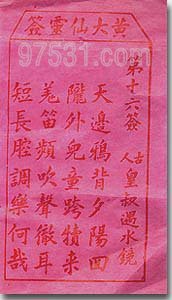 黃大仙靈簽
97531.com
第十六簽
古人 皇叔遇水鏡
天邊鴉背夕陽回
隴外兒童跨犢来
羗笛頻吹聲徹耳
短長腔調樂何哉